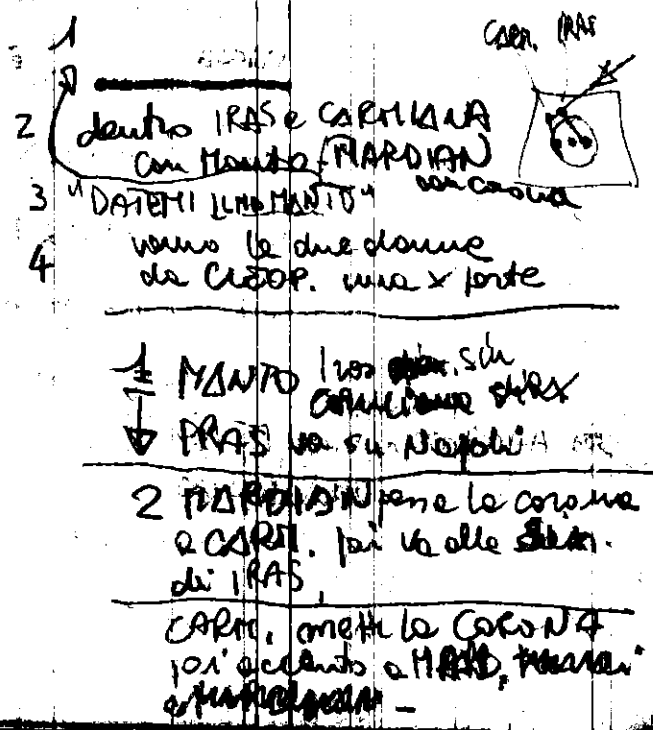 1
CARM. IRAS
2 dentro IRAS e CARMIANA
con Manto - MARDIAN
con corona
3 "DATEMI IL MIO MANTO"
4 vanno le due donne
da CLEOP. una x parte
1 MANTO Iras sin
Carmiana
IRAS va su
2 MARDIAN passa la corona
a CARM. poi va alla
di IRAS
CARM. mette la CORONA
poi accanto a